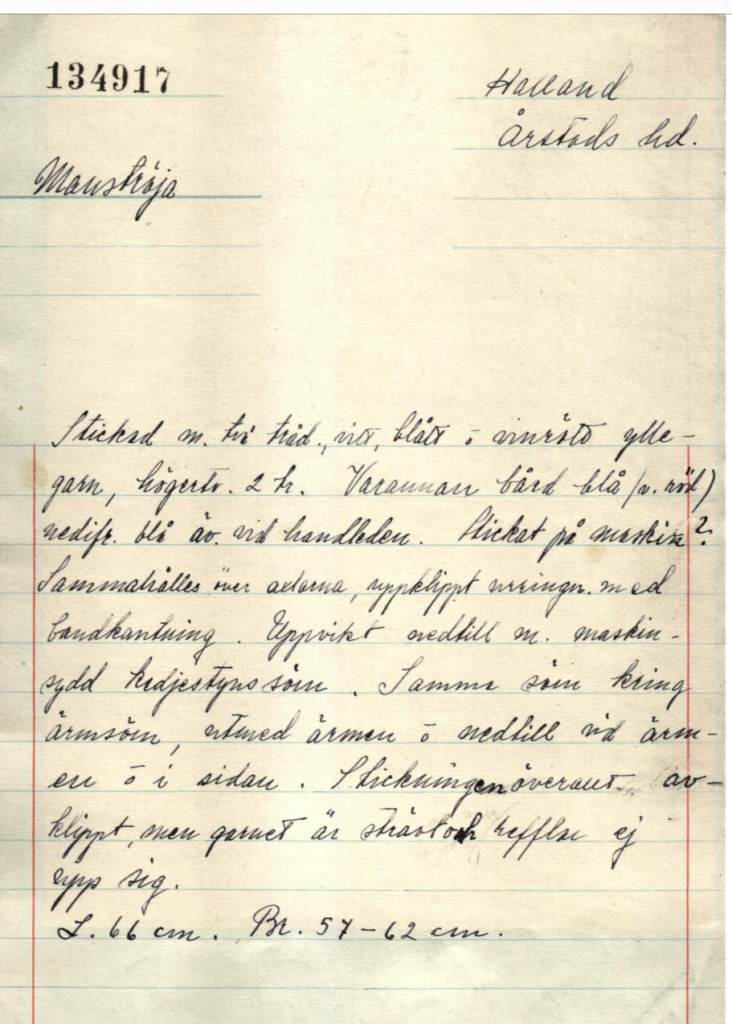 134917
Halland
Årstads hd.
Manströja
Stickad m. två tråd., vitt, blått o vinrött ylle-
garn, högerto. 2 tr. Varannan bård blå (v. röd)
nedifr. blå äv. vid handleden. Stickat på maskin?
Sammahålles över axlarna, uppklippt urringn. med
bandkantning. Uppvikt nedtill m. maskin-
sydd kedjestynssöm. Samma söm kring
ärmsöm, utmed ärmen o nedtill vid ärm-
en o i sidan. Stickningen överallt av-
klippt, men garnet är strävt och refflar ej
upp sig.
L. 66 cm. Br. 57-62 cm.